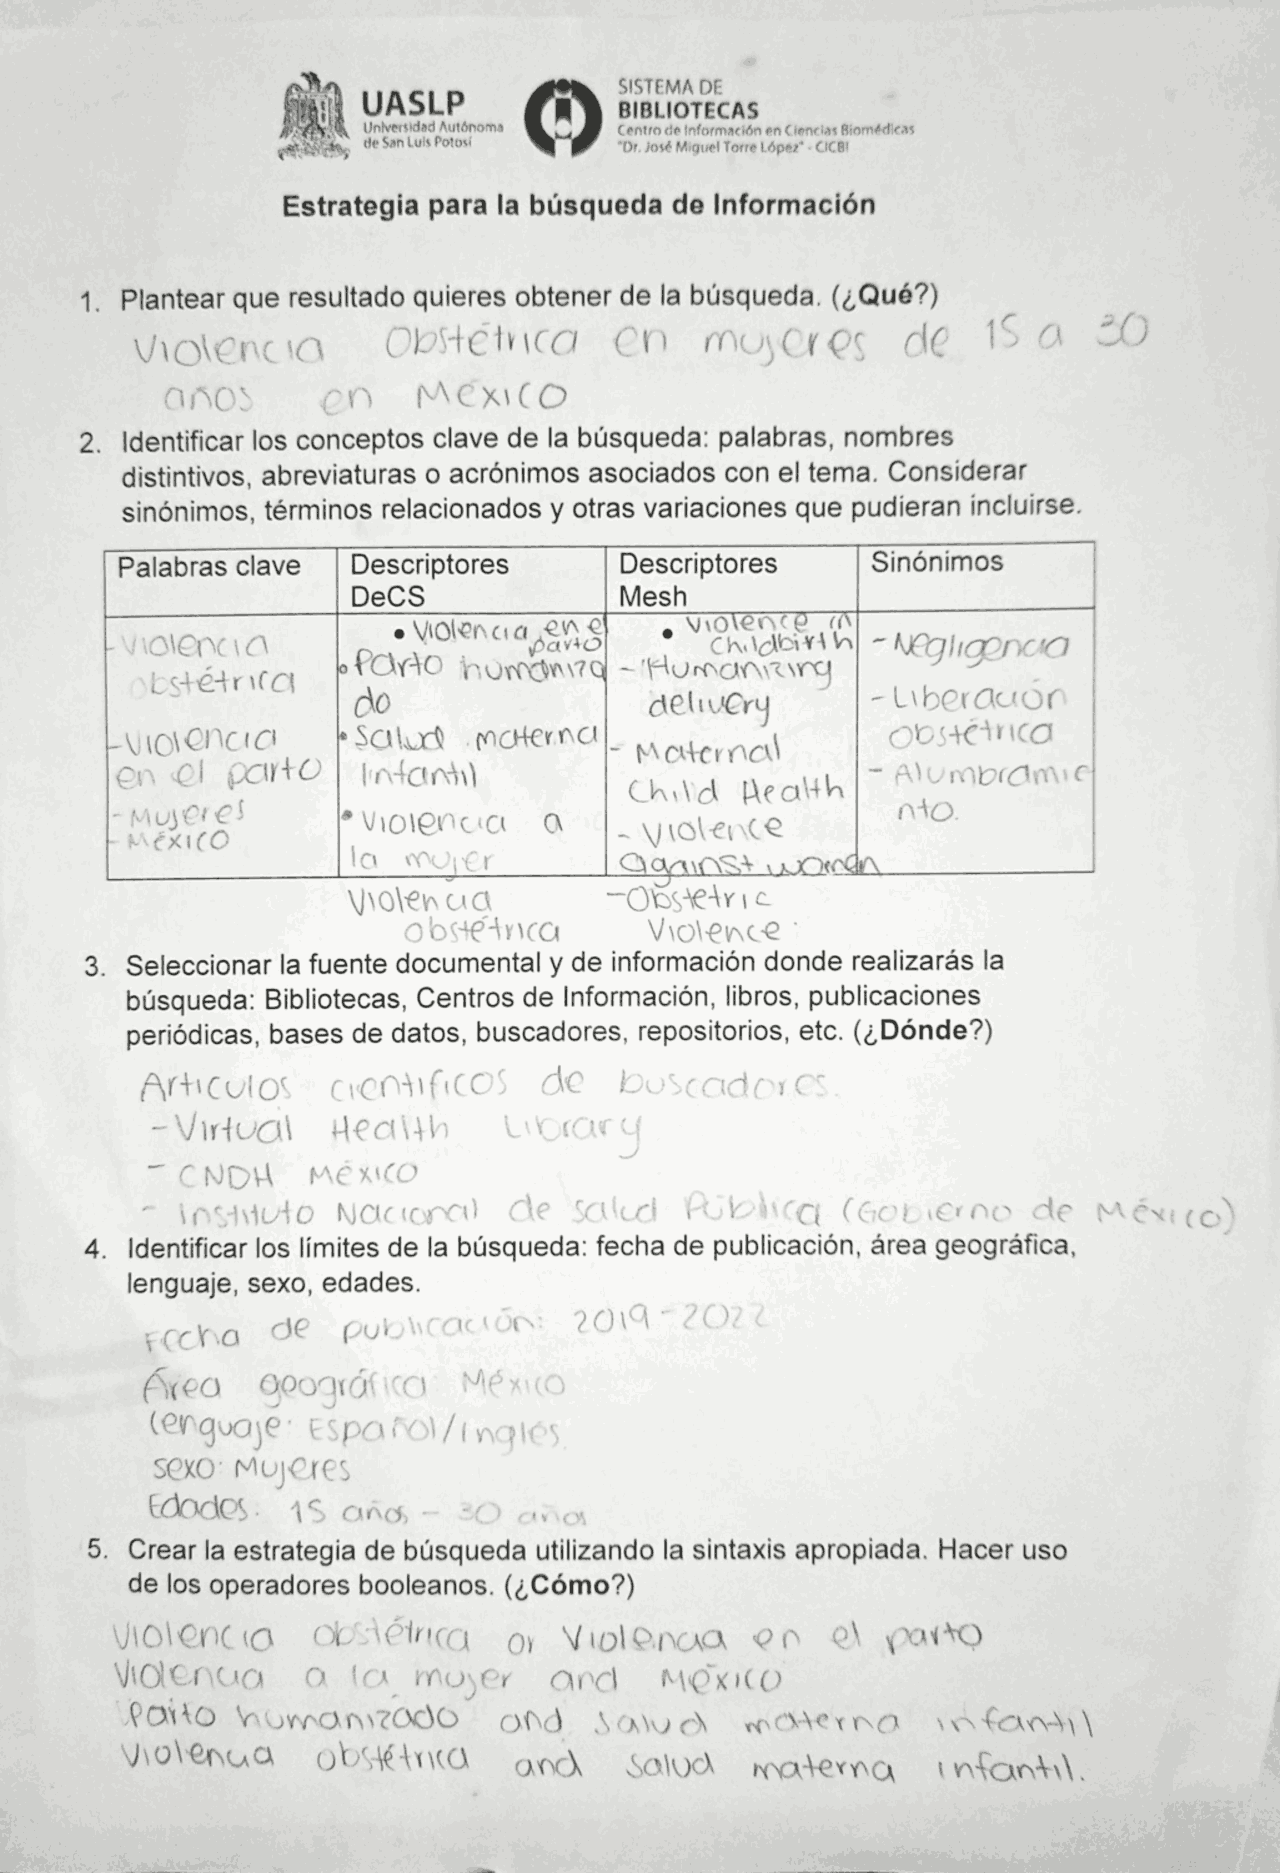 UASLP
Universidad Autónoma
de San Luis Potosí
SISTEMA DE
BIBLIOTECAS
Centro de Información en Ciencias Biomédicas
"Dr. José Miguel Torre López" - CICBI
Estrategia para la búsqueda de Información
1. Plantear que resultado quieres obtener de la búsqueda. (¿Qué?)
Violencia Obstétrica en mujeres de 15 a 30
años en México
2. Identificar los conceptos clave de la búsqueda: palabras, nombres
distintivos, abreviaturas o acrónimos asociados con el tema. Considerar
sinónimos, términos relacionados y otras variaciones que pudieran incluirse.
Palabras clave
- Violencia
obstétrica
- Violencia
en el parto
- Mujeres
- México
Descriptores
DeCS
• Violencia en el
parto
• Parto humaniza
do
• Salud materna
Infantil
• Violencia a
la mujer
Violencia
obstétrica
Descriptores
Mesh
• Violence in
Childbirth
- Humanizing
delivery
- Maternal
Child Health
- Violence
against women
- Obstetric
Violence
Sinónimos
- Negligencia
- Liberación
obstétrica
- Alumbramie
nto.
3. Seleccionar la fuente documental y de información donde realizarás la
búsqueda: Bibliotecas, Centros de Información, libros, publicaciones
periódicas, bases de datos, buscadores, repositorios, etc. (¿Dónde?)
Articulos cientificos de buscadores.
- Virtual Health Library
- CNDH México
- Instituto Nacional de salud Pública (Gobierno de México)
4. Identificar los límites de la búsqueda: fecha de publicación, área geográfica,
lenguaje, sexo, edades.
Fecha de publicación: 2019-2022
Área geográfica: México
lenguaje: Español/Inglés
sexo: Mujeres
Edades: 15 años - 30 años
5. Crear la estrategia de búsqueda utilizando la sintaxis apropiada. Hacer uso
de los operadores booleanos. (¿Cómo?)
Violencia obstétrica or Violencia en el parto
Violencia a la mujer and México
Parto humanizado and Salud materna infantil
Violencia obstétrica and Salud materna infantil.